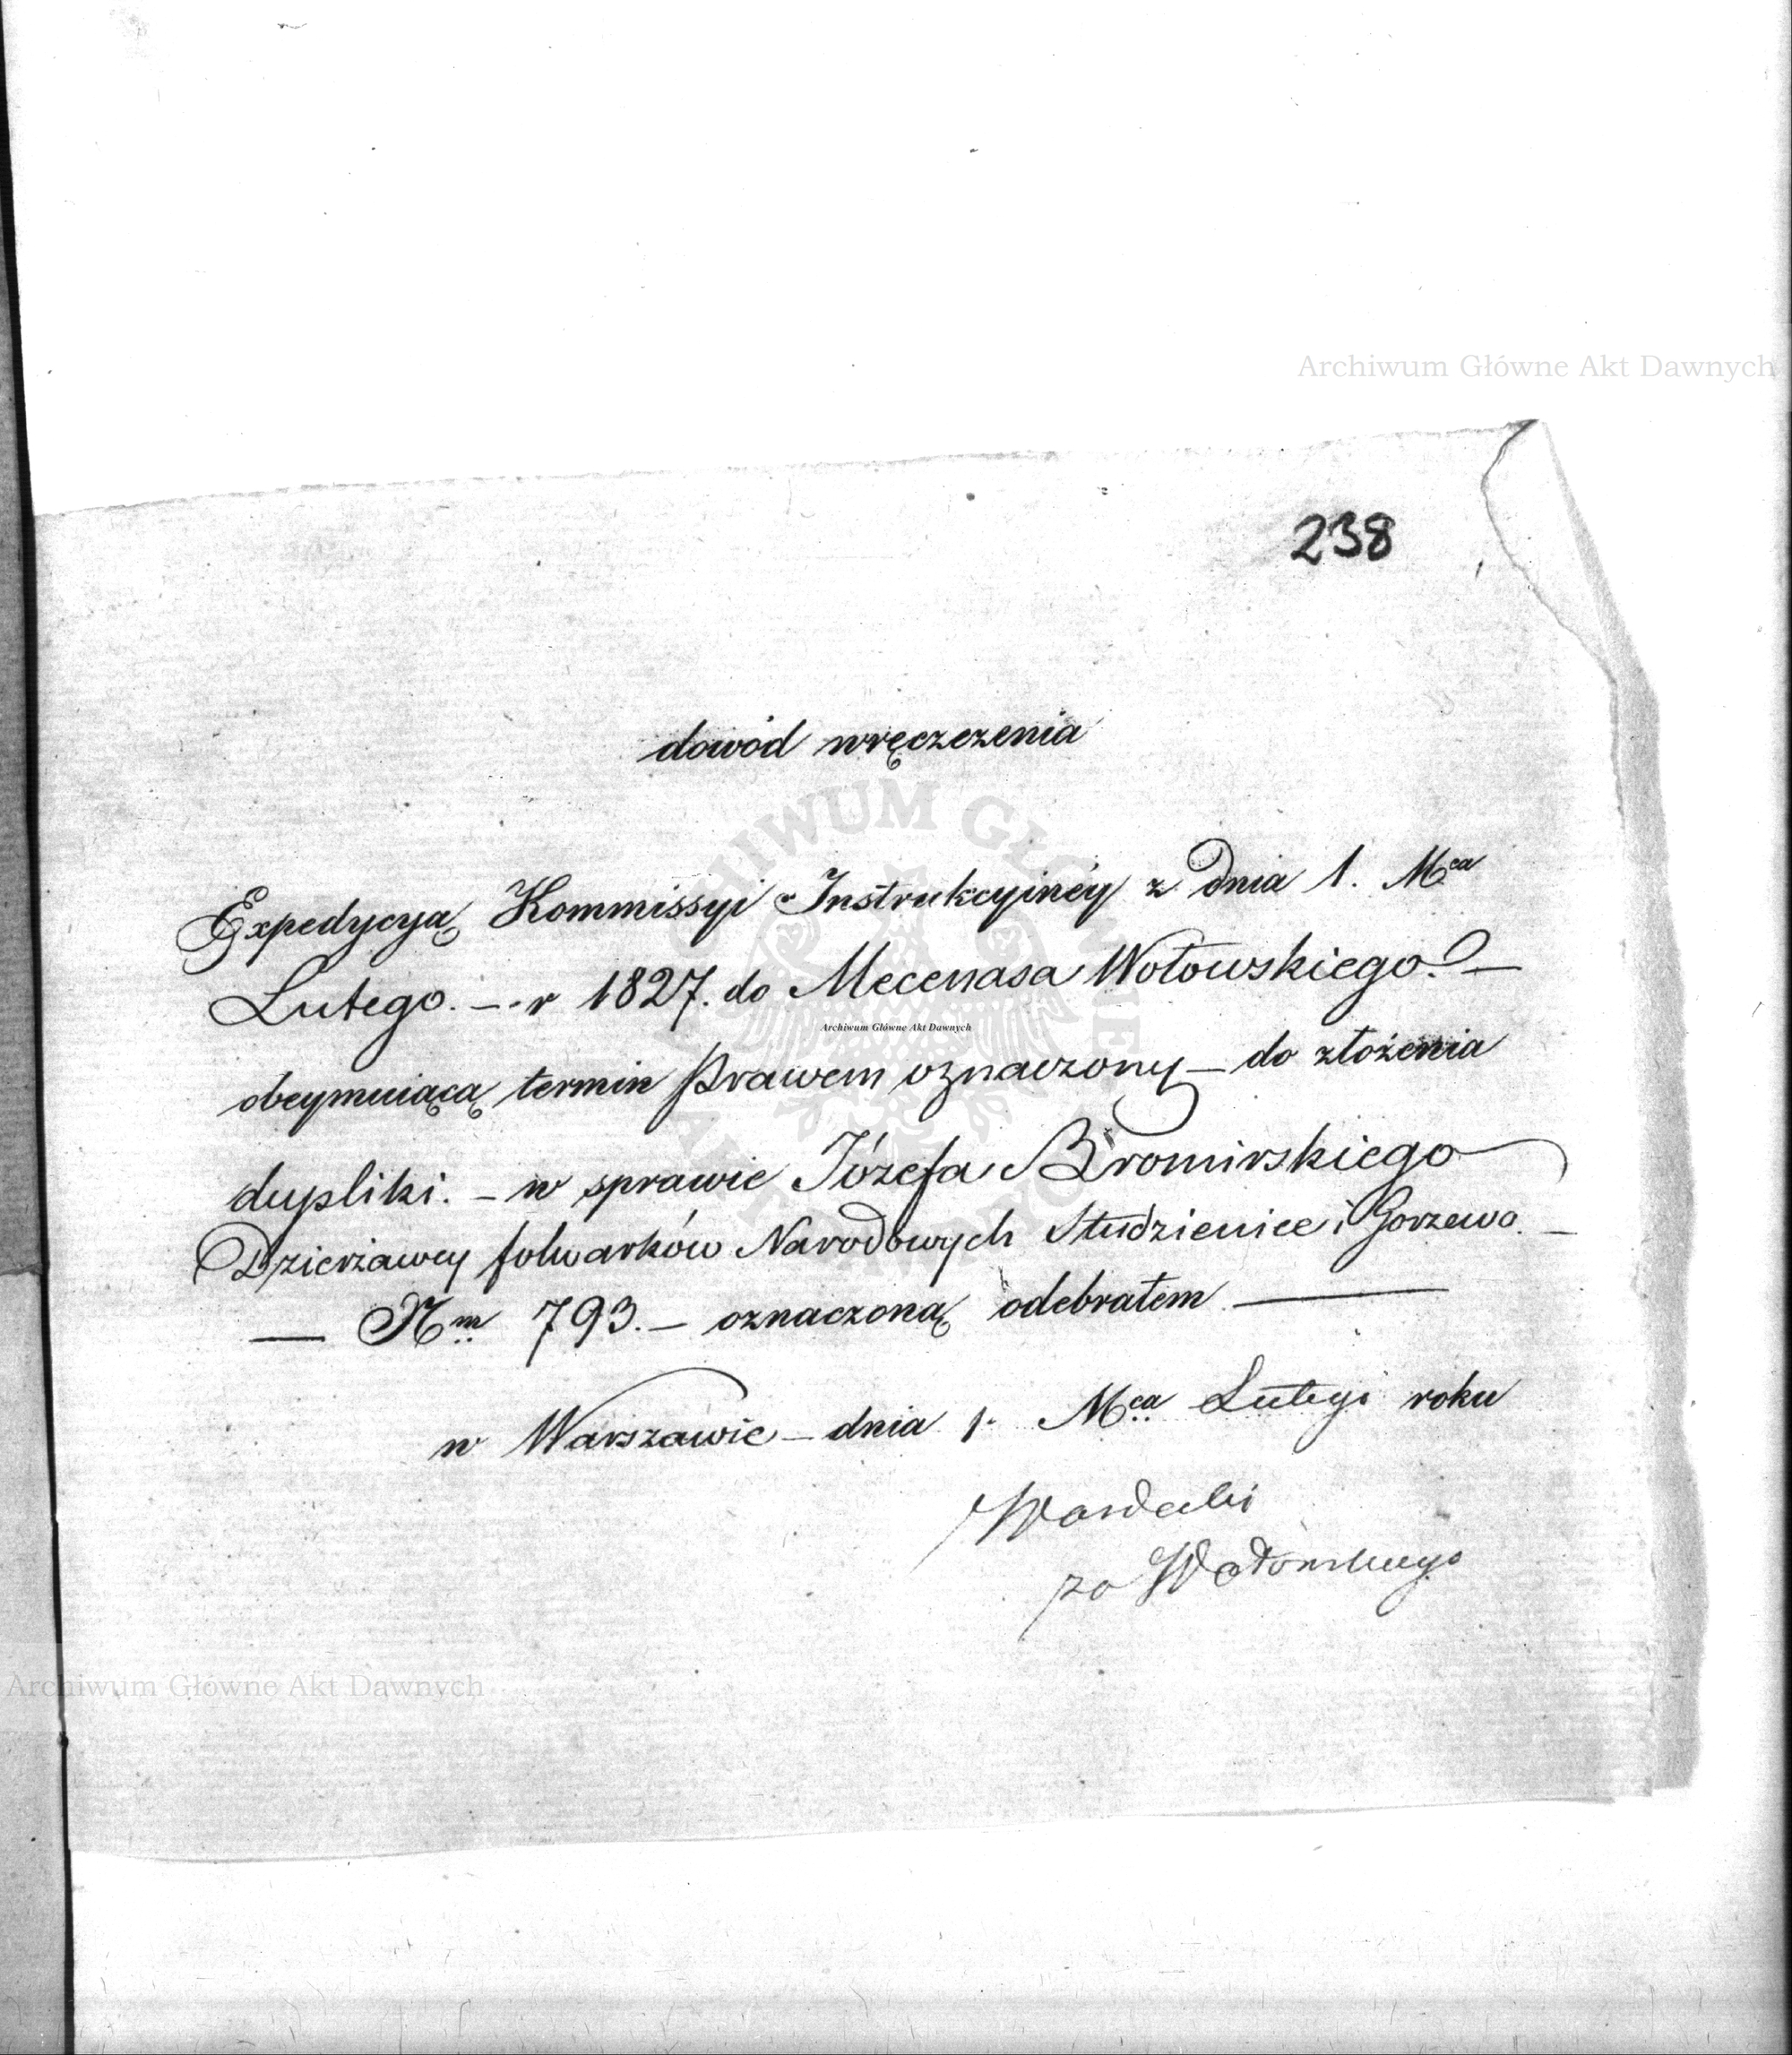 Archiwum Główne Akt Dawnych
238
dowód wręczezenia
Expedycyą Kommissyi Instrukcyiney z dnia 1. Mca
Lutego. — r 1827. do Mecenasa Wołowskiego. —
obeymuiącą termin Prawem oznaczony — do złożenia
dupliki. — w sprawie Józefa Bromirskiego
Dzierżawcy folwarków Narodowych Studzieniec i Gorzewo. —
— Nm 793. — oznaczoną odebrałem —
w Warszawie — dnia 1. Mca Lutego roku
za Wołowskiego
ARCHIWUM GŁÓWNE AKT DAWNYCH
Archiwum Główne Akt Dawnych
Archiwum Główne Akt Dawnych